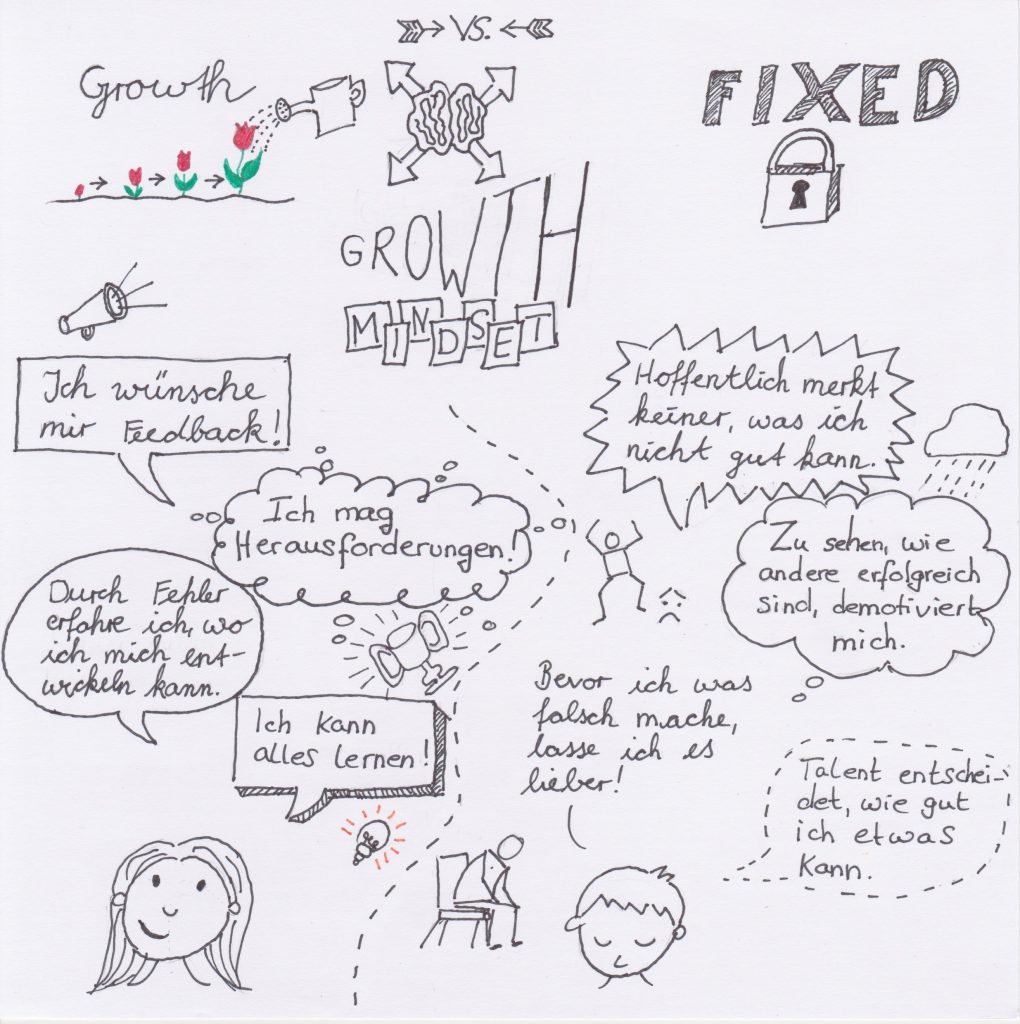 VS.
Growth
FIXED
GROWTH
MINDSET
Ich wünsche
mir Feedback!
Ich mag
Herausforderungen!
Durch Fehler
erfahre ich, wo
ich mich ent-
wickeln kann.
Ich kann
alles lernen!
Hoffentlich merkt
keiner, was ich
nicht gut kann.
Zu sehen, wie
andere erfolgreich
sind, demotiviert
mich.
Bevor ich was
falsch mache,
lasse ich es
lieber!
Talent entschei-
det, wie gut
ich etwas
kann.